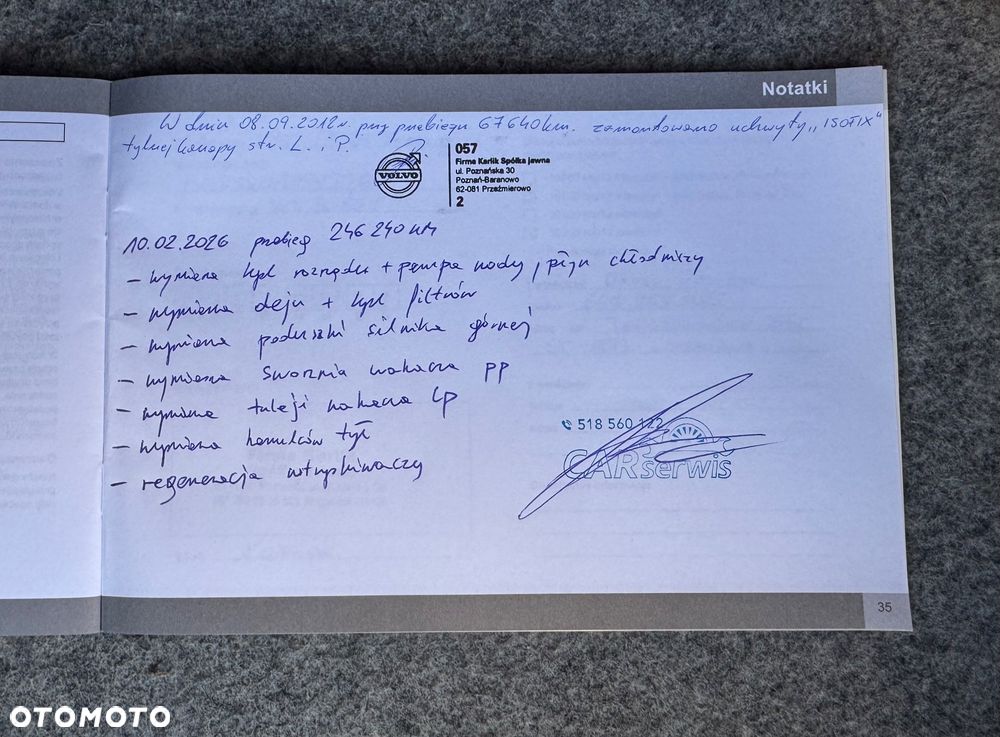 Notatki
W dniu 08.09.2012r. przy przebiegu 67640km. zamontowano uchwyty „ISOFIX"
tylnej kanapy str. L. i P.
VOLVO
057
Firma Karlik Spółka jawna
ul. Poznańska 30
Poznań-Baranowo
62-081 Przeźmierowo
2
10.02.2026 przebieg 246240 KM
- wymiana kpl rozrządu + pompa wody, płyn chłodniczy
- wymiana oleju + kpl filtrów
- wymiana poduszki silnika górnej
- wymiana sworznia wahacza PP
- wymiana tuleji wahacza LP
- wymiana hamulców tył
- regeneracja wtryskiwaczy
518 560 122
CAR serwis
35
OTOMOTO